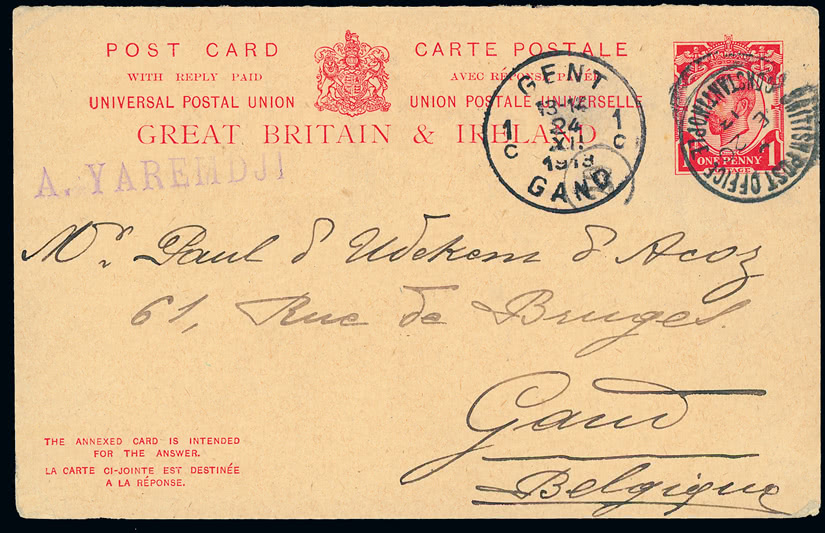 POST CARD
WITH REPLY PAID
UNIVERSAL POSTAL UNION
CARTE POSTALE
AVEC RÉPONSE PAYÉE
UNION POSTALE UNIVERSELLE
GREAT BRITAIN & IRELAND
ONE PENNY
POSTAGE
1
GENT
1
C
24
XII
1913
1
C
GAND
BRITISH POST OFFICE
CONSTANTINOPLE
A. YAREMDJI
Mr. Paul d'Udekem d'Acoz
61, Rue de Bruges.
Gand
Belgique
THE ANNEXED CARD IS INTENDED
FOR THE ANSWER.
LA CARTE CI-JOINTE EST DESTINÉE
A LA RÉPONSE.